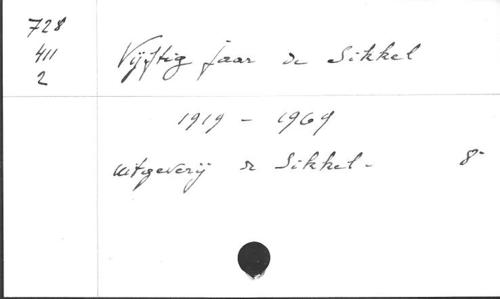 728
411
2
Vijftig jaar de Sikkel
1919 - 1969
uitgeverij de Sikkel - 8°